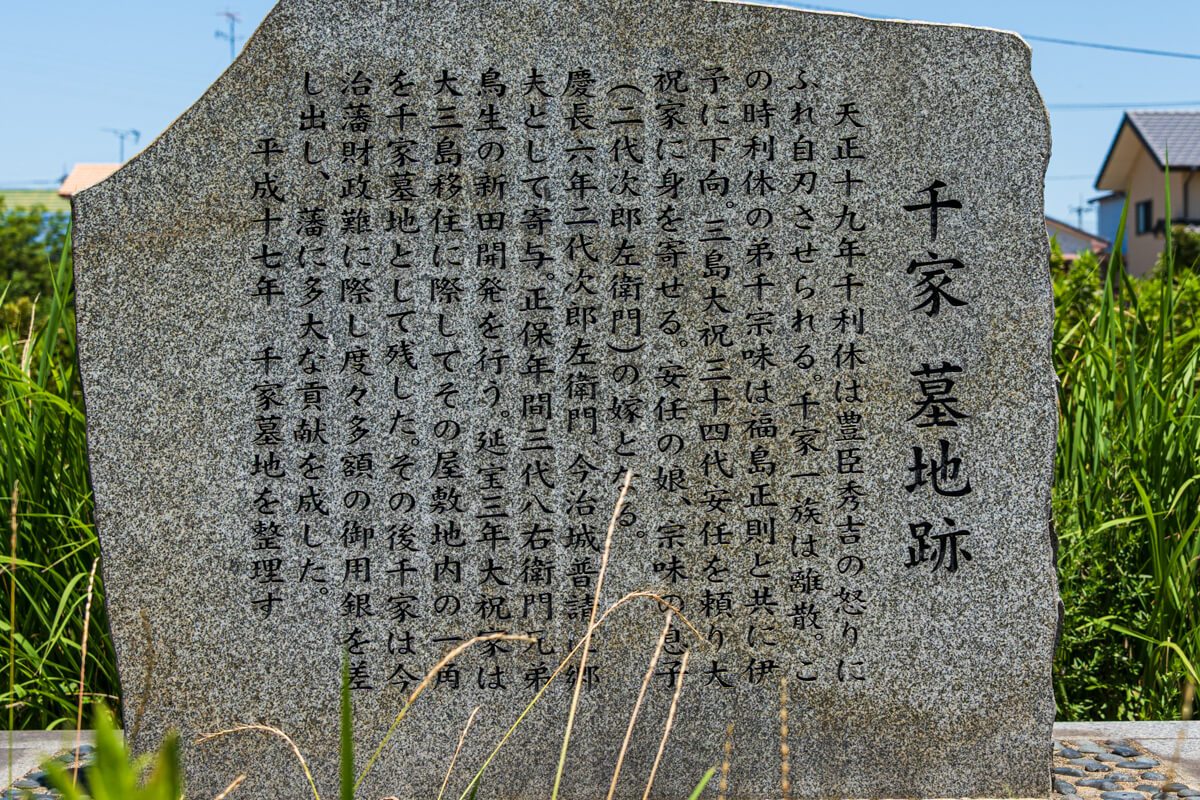 千家 墓地跡
天正十九年千利休は豊臣秀吉の怒りに
ふれ自刃させられる。千家一族は離散。こ
の時利休の弟千宗味は福島正則と共に伊
予に下向。三島大祝三十四代安任を頼り大
祝家に身を寄せる。安任の娘、宗味の息子
(二代次郎左衛門)の嫁となる。
慶長六年二代次郎左衛門、今治城普請に郷
夫として寄与。正保年間三代八右衛門兄弟
鳥生の新田開発を行う。延宝三年大祝家は
大三島移住に際してその屋敷地内の一角
を千家墓地として残した。その後千家は今
治藩財政難に際し度々多額の御用銀を差
し出し、藩に多大な貢献を成した。
平成十七年 千家墓地を整理す